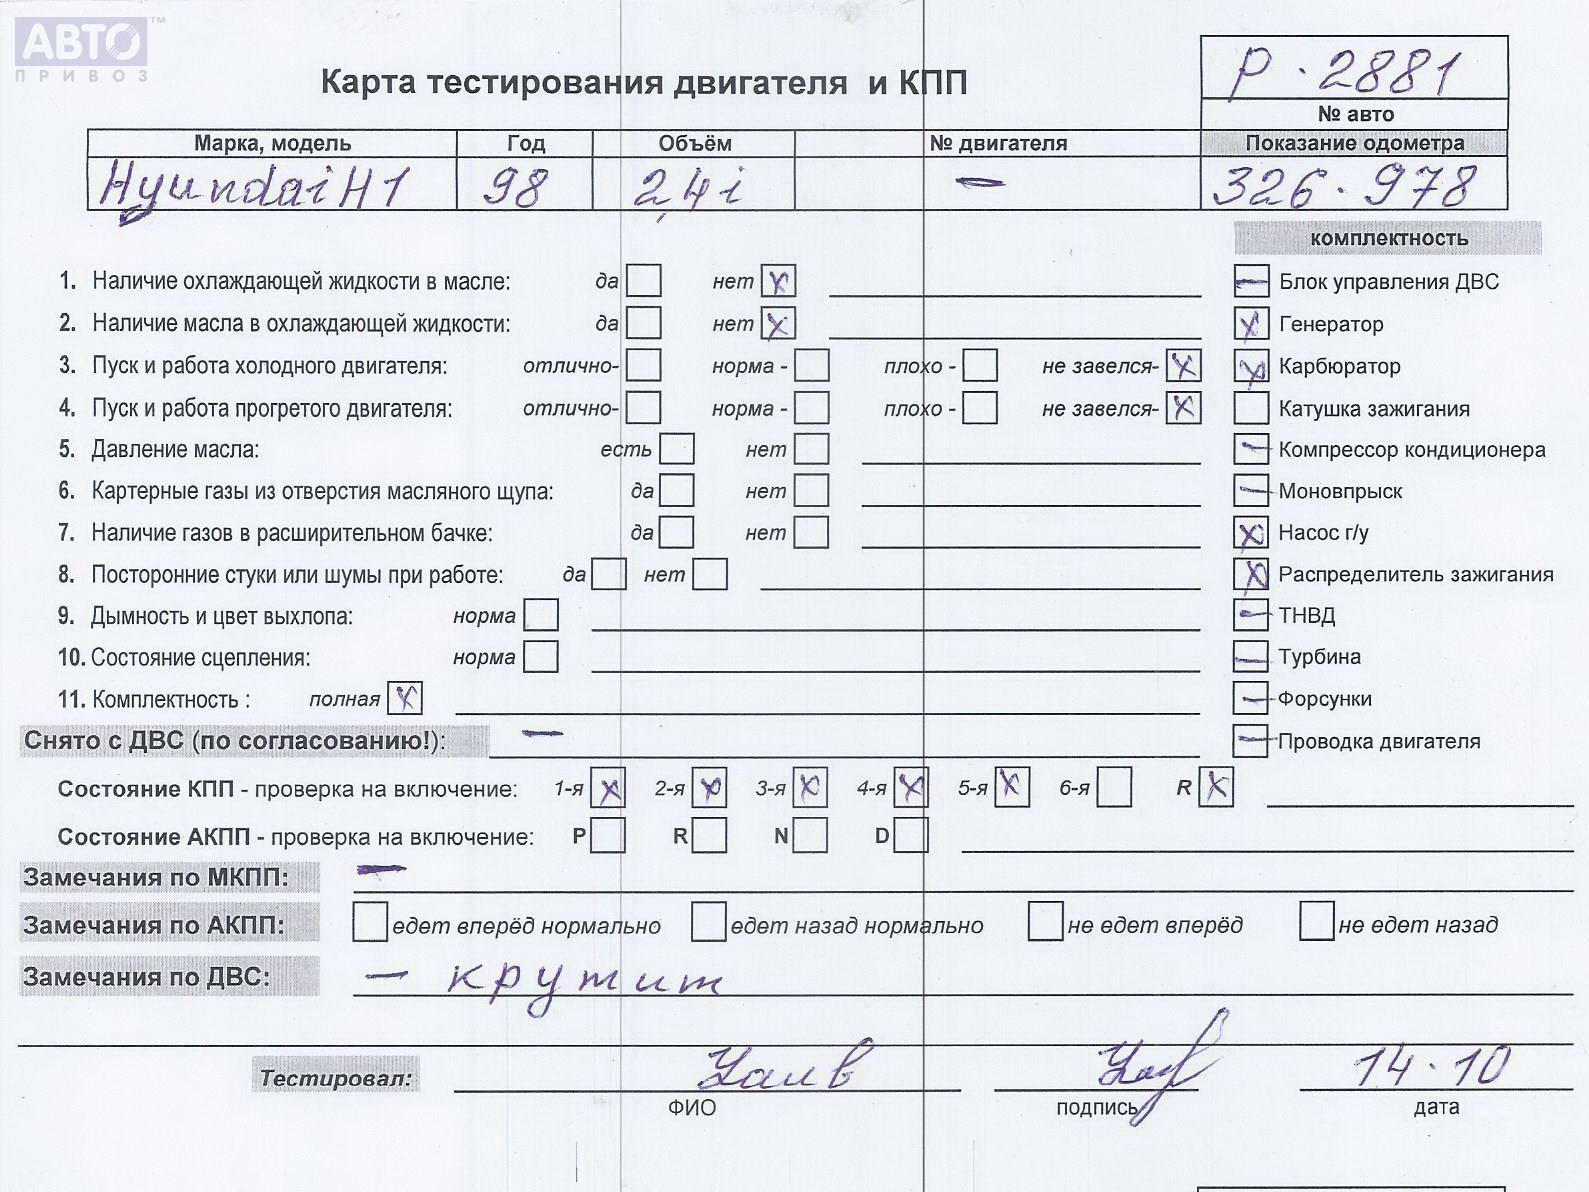 АВТО™
ПРИВОЗ
Карта тестирования двигателя и КПП
P · 2881
№ авто
Марка, модель Год Объём № двигателя Показание одометра
Hyundai H1 98 2,4i — 326 · 978
комплектность
1. Наличие охлаждающей жидкости в масле: да нет x
— Блок управления ДВС
2. Наличие масла в охлаждающей жидкости: да нет x
x Генератор
3. Пуск и работа холодного двигателя: отлично- норма - плохо - не завелся- x
x Карбюратор
4. Пуск и работа прогретого двигателя: отлично- норма - плохо - не завелся- x
Катушка зажигания
5. Давление масла: есть нет
— Компрессор кондиционера
6. Картерные газы из отверстия масляного щупа: да нет
— Моновпрыск
7. Наличие газов в расширительном бачке: да нет
x Насос г/у
8. Посторонние стуки или шумы при работе: да нет
x Распределитель зажигания
9. Дымность и цвет выхлопа: норма
— ТНВД
10. Состояние сцепления: норма
— Турбина
11. Комплектность : полная x
— Форсунки
Снято с ДВС (по согласованию!): —
— Проводка двигателя
Состояние КПП - проверка на включение: 1-я x 2-я x 3-я x 4-я x 5-я x 6-я R x
Состояние АКПП - проверка на включение: P R N D
Замечания по МКПП: —
Замечания по АКПП: едет вперёд нормально едет назад нормально не едет вперёд не едет назад
Замечания по ДВС: — крутит
Тестировал: 14 · 10
ФИО подпись дата